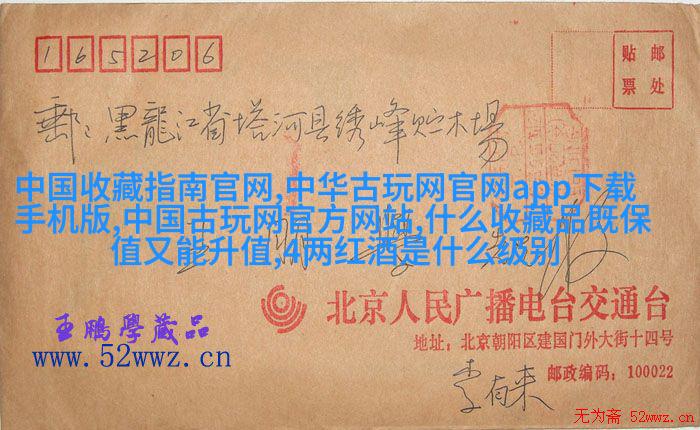 165206
贴邮
票处
邮：黑龍江省塔河县绣峰贮木場
中国收藏指南官网,中华古玩网官网app下载
手机版,中国古玩网官方网站,什么收藏品既保
值又能升值,4两红酒是什么级别
王鹏學
收
北京人民广播电台交通台
地址：北京朝阳区建国门外大街十四号
王鹏學藏品
www.52wwz.cn
李有来 邮政编码：100022
无为斋 52wwz.cn